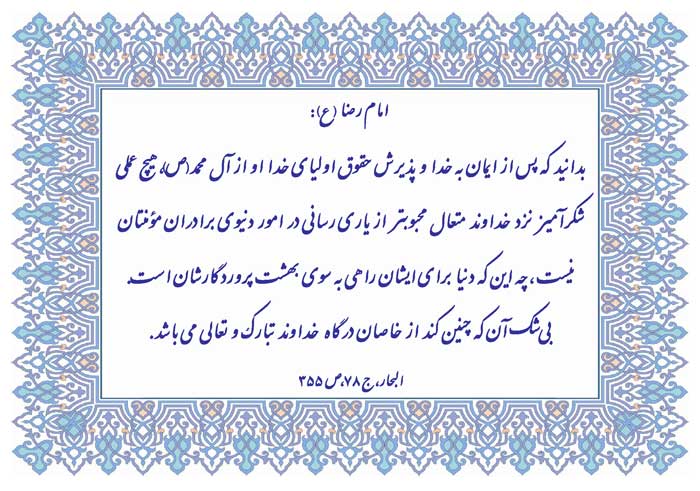 امام رضا (ع):
بدانید که پس از ایمان به خدا و پذیرش حقوق اولیای خدا او از آل محمد(ص)، هیچ عملی
شکرآمیز نزد خداوند متعال محبوبتر از یاری رسانی در امور دنیوی برادران مؤمنتان
نیست، چه این که دنیا برای ایشان راهی به سوی بهشت پروردگارشان است.
بی‌شک آن که چنین کند از خاصان درگاه خداوند تبارک و تعالی می باشد.
البحار، ج ۷۸، ص ۳۵۵